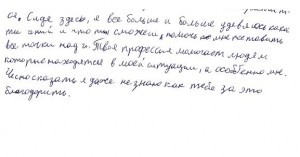 ся. Сидя здесь, я все больше и больше удивляюсь какая
ты и что ты сможешь помочь мне поставить
все точки над и. Твоя профессия помогает людям
которые находятся в моей ситуации, а особенно мне.
Чесно сказать я даже не знаю как тебе за это
благодорить.